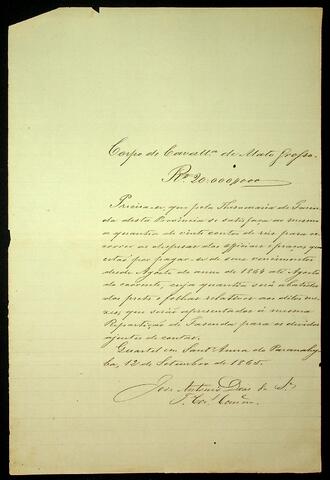 Corpo de Cavall.ª de Mato Grosso.
Rs 20.000$000
Precisa-se, que pela Thesouraria de Fazen-
da desta Provincia se satisfaça ao mesmo
a quantia de vinte contos de reis para oc-
correr as despesas dos officiaes e praças que
estão por pagar-se de seus vencimentos
desde Agosto do anno de 1864 até Agosto
do corrente, cuja quantia será abatida
dos prets e folhas relativos aos ditos me-
zes, que serão apresentados á mesma
Repartição de Fazenda para os devidos
ajustes de contas.
Quartel em Sant'Anna do Paranahy-
ba, 12 de Setembro de 1865.
José Antonio Dias da S.ª
T. Cor.el Comm.